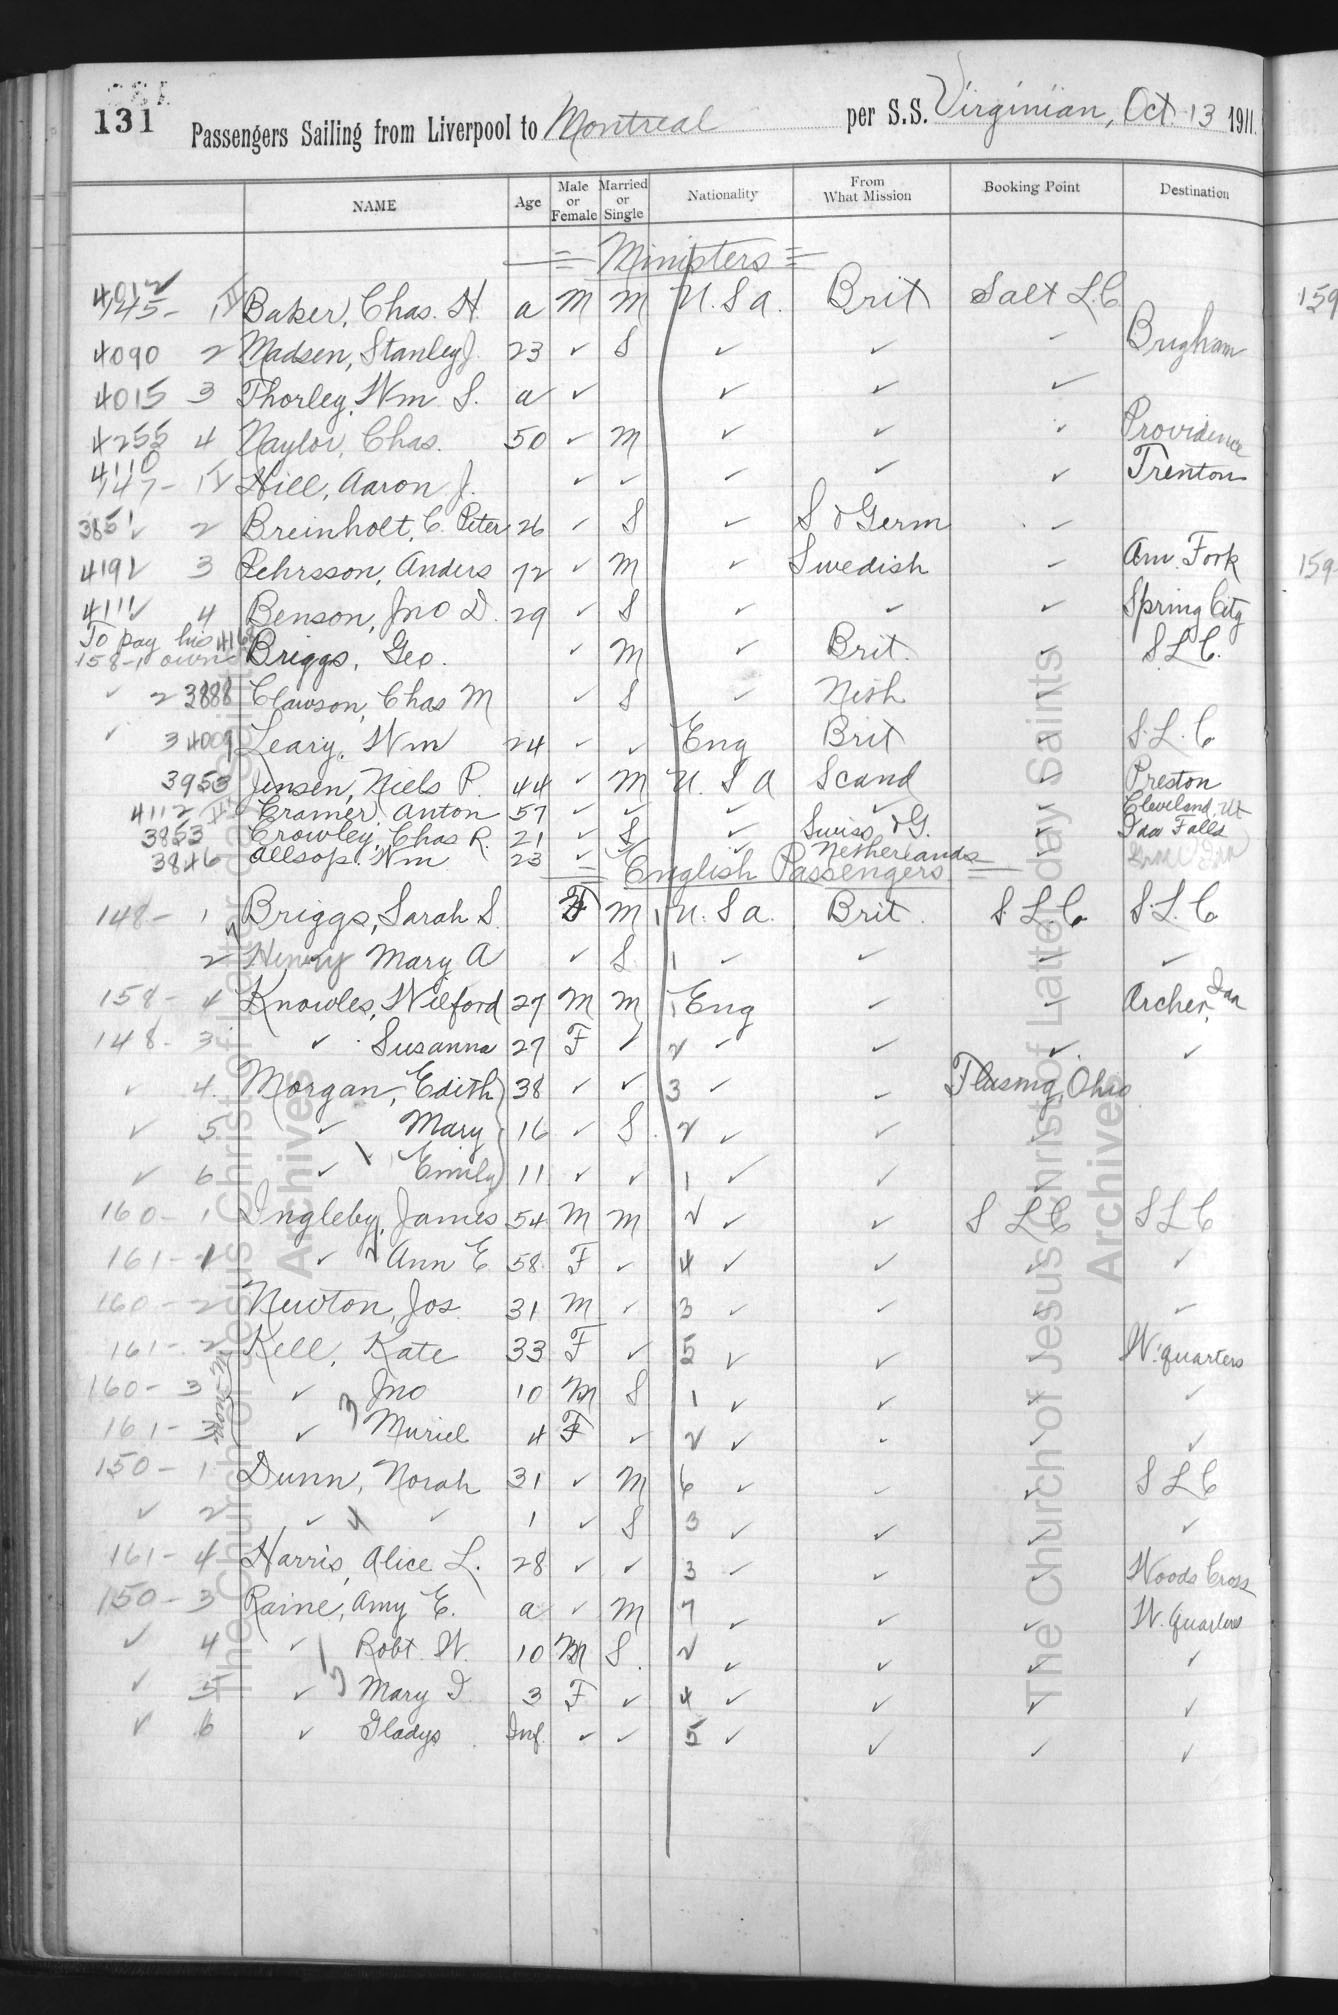 131
Passengers Sailing from Liverpool to Montreal per S.S. Virginian, Oct. 13 1911.
NAME Age Male or Female Married or Single Nationality From What Mission Booking Point Destination
= Ministers =
4012 145- 1 Baker, Chas. H. a M M U.S a. Brit Salt L.C. 159
4090 2 Madsen, Stanley J. 23 ✓ S ✓ ✓ ✓ Brigham
4015 3 Thorley, Wm S. a ✓ ✓ ✓ ✓
4255 4 Naylor, Chas. 50 ✓ M ✓ ✓ ✓ Providence
4110 147- 1 Hill, Aaron J. ✓ ✓ ✓ ✓ ✓ Trenton
3851 ✓ 2 Breinholt, C. Peter 26 ✓ S ✓ S & Germ ✓
4191 3 Pehrsson, Anders 72 ✓ M ✓ Swedish ✓ Am. Fork 159-
4111 ✓ 4 Benson, Jno D. 29 ✓ S ✓ ✓ ✓ Spring City
To pay his own 158-1 Briggs, Geo. ✓ M ✓ Brit. ✓ S L C.
✓ 2 3888 Clawson, Chas M ✓ S ✓ Neth ✓
✓ 3 4009 Leary, Wm 24 ✓ ✓ Eng Brit ✓ S. L. C
3953 Jensen, Niels P. 44 ✓ M U. S a Scand ✓ Preston
4112 Cramer, Anton 57 ✓ ✓ ✓ ✓ ✓ Cleveland, Ut
3853 Crowley, Chas R. 21 ✓ S ✓ Swiss & G. ✓ Ida Falls
3846 Allsop, Wm 23 ✓ ✓ ✓ Netherlands ✓
= English Passengers =
148- 1 Briggs, Sarah S. F M 1 U. S a. Brit. S. L. C. S. L. C
2 Henry Mary A ✓ S. 1 ✓ ✓ ✓ ✓
158- 4 Knowles, Wilford 27 M M 1 Eng ✓ ✓ Archer, Ida
148- 3 ✓ Susanna 27 F ✓ 2 ✓ ✓ ✓ ✓
✓ 4 Morgan, Edith 38 ✓ ✓ 3 ✓ ✓ Flusing, Ohio
✓ 5 ✓ Mary 16 ✓ S. 2 ✓ ✓ ✓
✓ 6 ✓ 1 Emily 11 ✓ ✓ 1 ✓ ✓ ✓
160- 1 Ingleby, James 54 M M 2 ✓ ✓ S L C S L C
161- 1 ✓ 2 Ann E 58 F ✓ 4 ✓ ✓ ✓ ✓
160- 2 Newton, Jos. 31 M ✓ 3 ✓ ✓ ✓ ✓
161- 2 Kell, Kate 33 F ✓ 5 ✓ ✓ ✓ W. quarters
160- 3 ✓ Jno 10 M S 1 ✓ ✓ ✓ ✓
161- 3 ✓ 3 Muriel 4 F ✓ 2 ✓ ✓ ✓ ✓
150- 1 Dunn, Norah 31 ✓ M 6 ✓ ✓ ✓ S L C
✓ 2 ✓ 4 ✓ 1 ✓ S 3 ✓ ✓ ✓ ✓
161- 4 Harris, Alice L. 28 ✓ ✓ 3 ✓ ✓ ✓ Woods Cross
150- 3 Raine, Amy E. a ✓ M 7 ✓ ✓ ✓ W. Quarters
✓ 4 ✓ Robt. W. 10 M S. 2 ✓ ✓ ✓ ✓
✓ 5 ✓ Mary I 3 F ✓ 4 ✓ ✓ ✓ ✓
✓ 6 ✓ Gladys Inf. ✓ ✓ 5 ✓ ✓ ✓ ✓
The Church of Jesus Christ of Latter-day Saints
Archives
The Church of Jesus Christ of Latter-day Saints
Archives